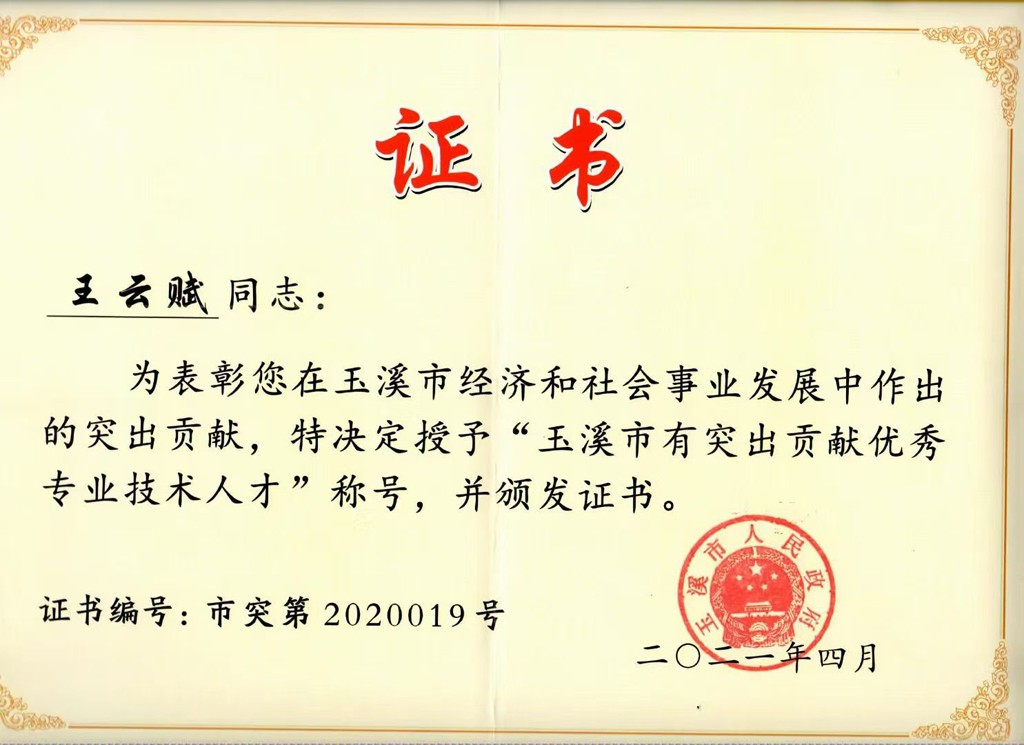 证书
王云赋同志：
为表彰您在玉溪市经济和社会事业发展中作出
的突出贡献，特决定授予“玉溪市有突出贡献优秀
专业技术人才”称号，并颁发证书。
玉溪市人民政府
证书编号：市突第2020019号
二〇二一年四月